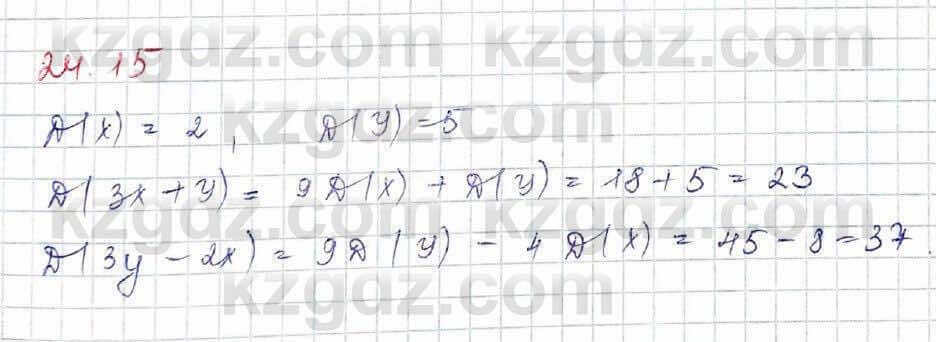 kzgdz.com kzgdz.com
24.15
kzgdz.com
D(X) = 2, D(Y) = 5
D(3x + y) = 9D(X) + D(Y) = 18 + 5 = 23
kzgdz.com kzgdz.com
D(3y - 2x) = 9D(Y) - 4D(X) = 45 - 8 = 37.
kzgdz.com